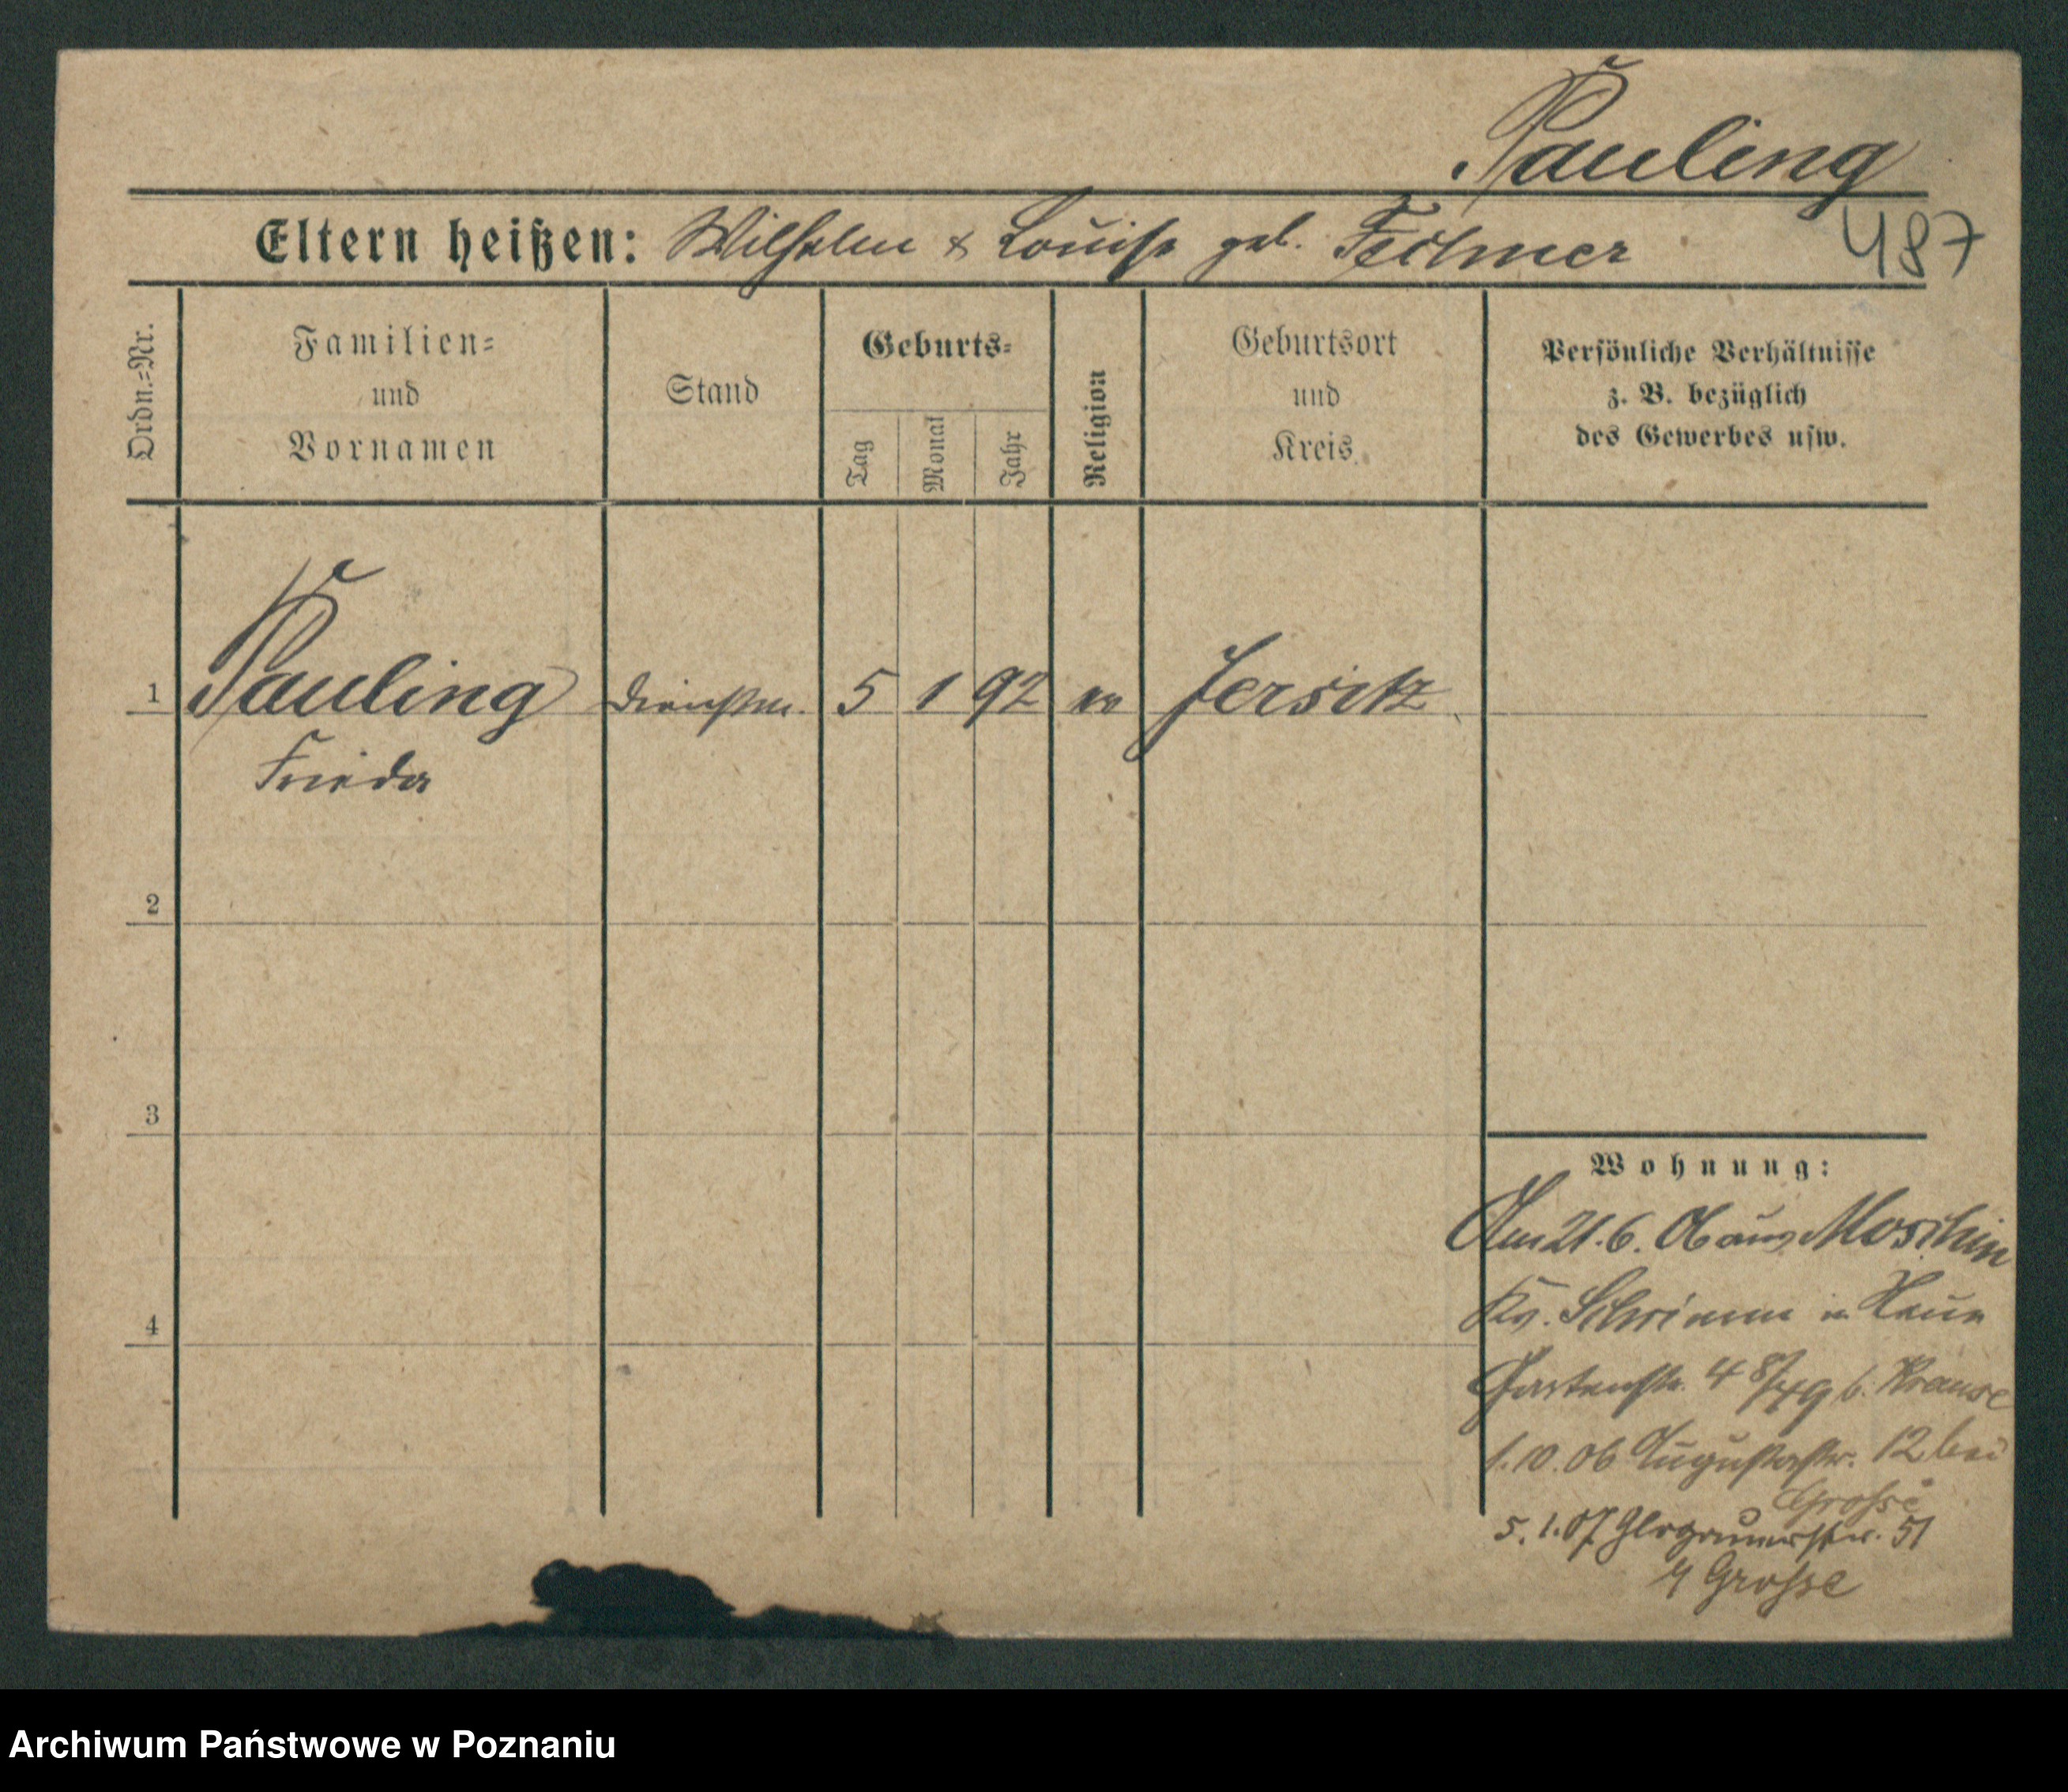 Pauling
Eltern heißen: Wilhelm & Louise geb. Fechner
487
Ordn.-Nr.
Familien- und Vornamen
Stand
Geburts-
Tag
Monat
Jahr
Religion
Geburtsort und Kreis
Persönliche Verhältnisse
z. B. bezüglich
des Gewerbes usw.
1 Pauling 5 1 92 ev Jersitz
Frieda
2
3
4
Wohnung:
Am 21.6. 06 aus Moschin
Kr. Schrimm
Gartenstr. 4 b. Krause
1.10.06 Augustastr. 12 bei
Grosse
5.1.07 Glogauerstr. 51
Grosse
Archiwum Państwowe w Poznaniu